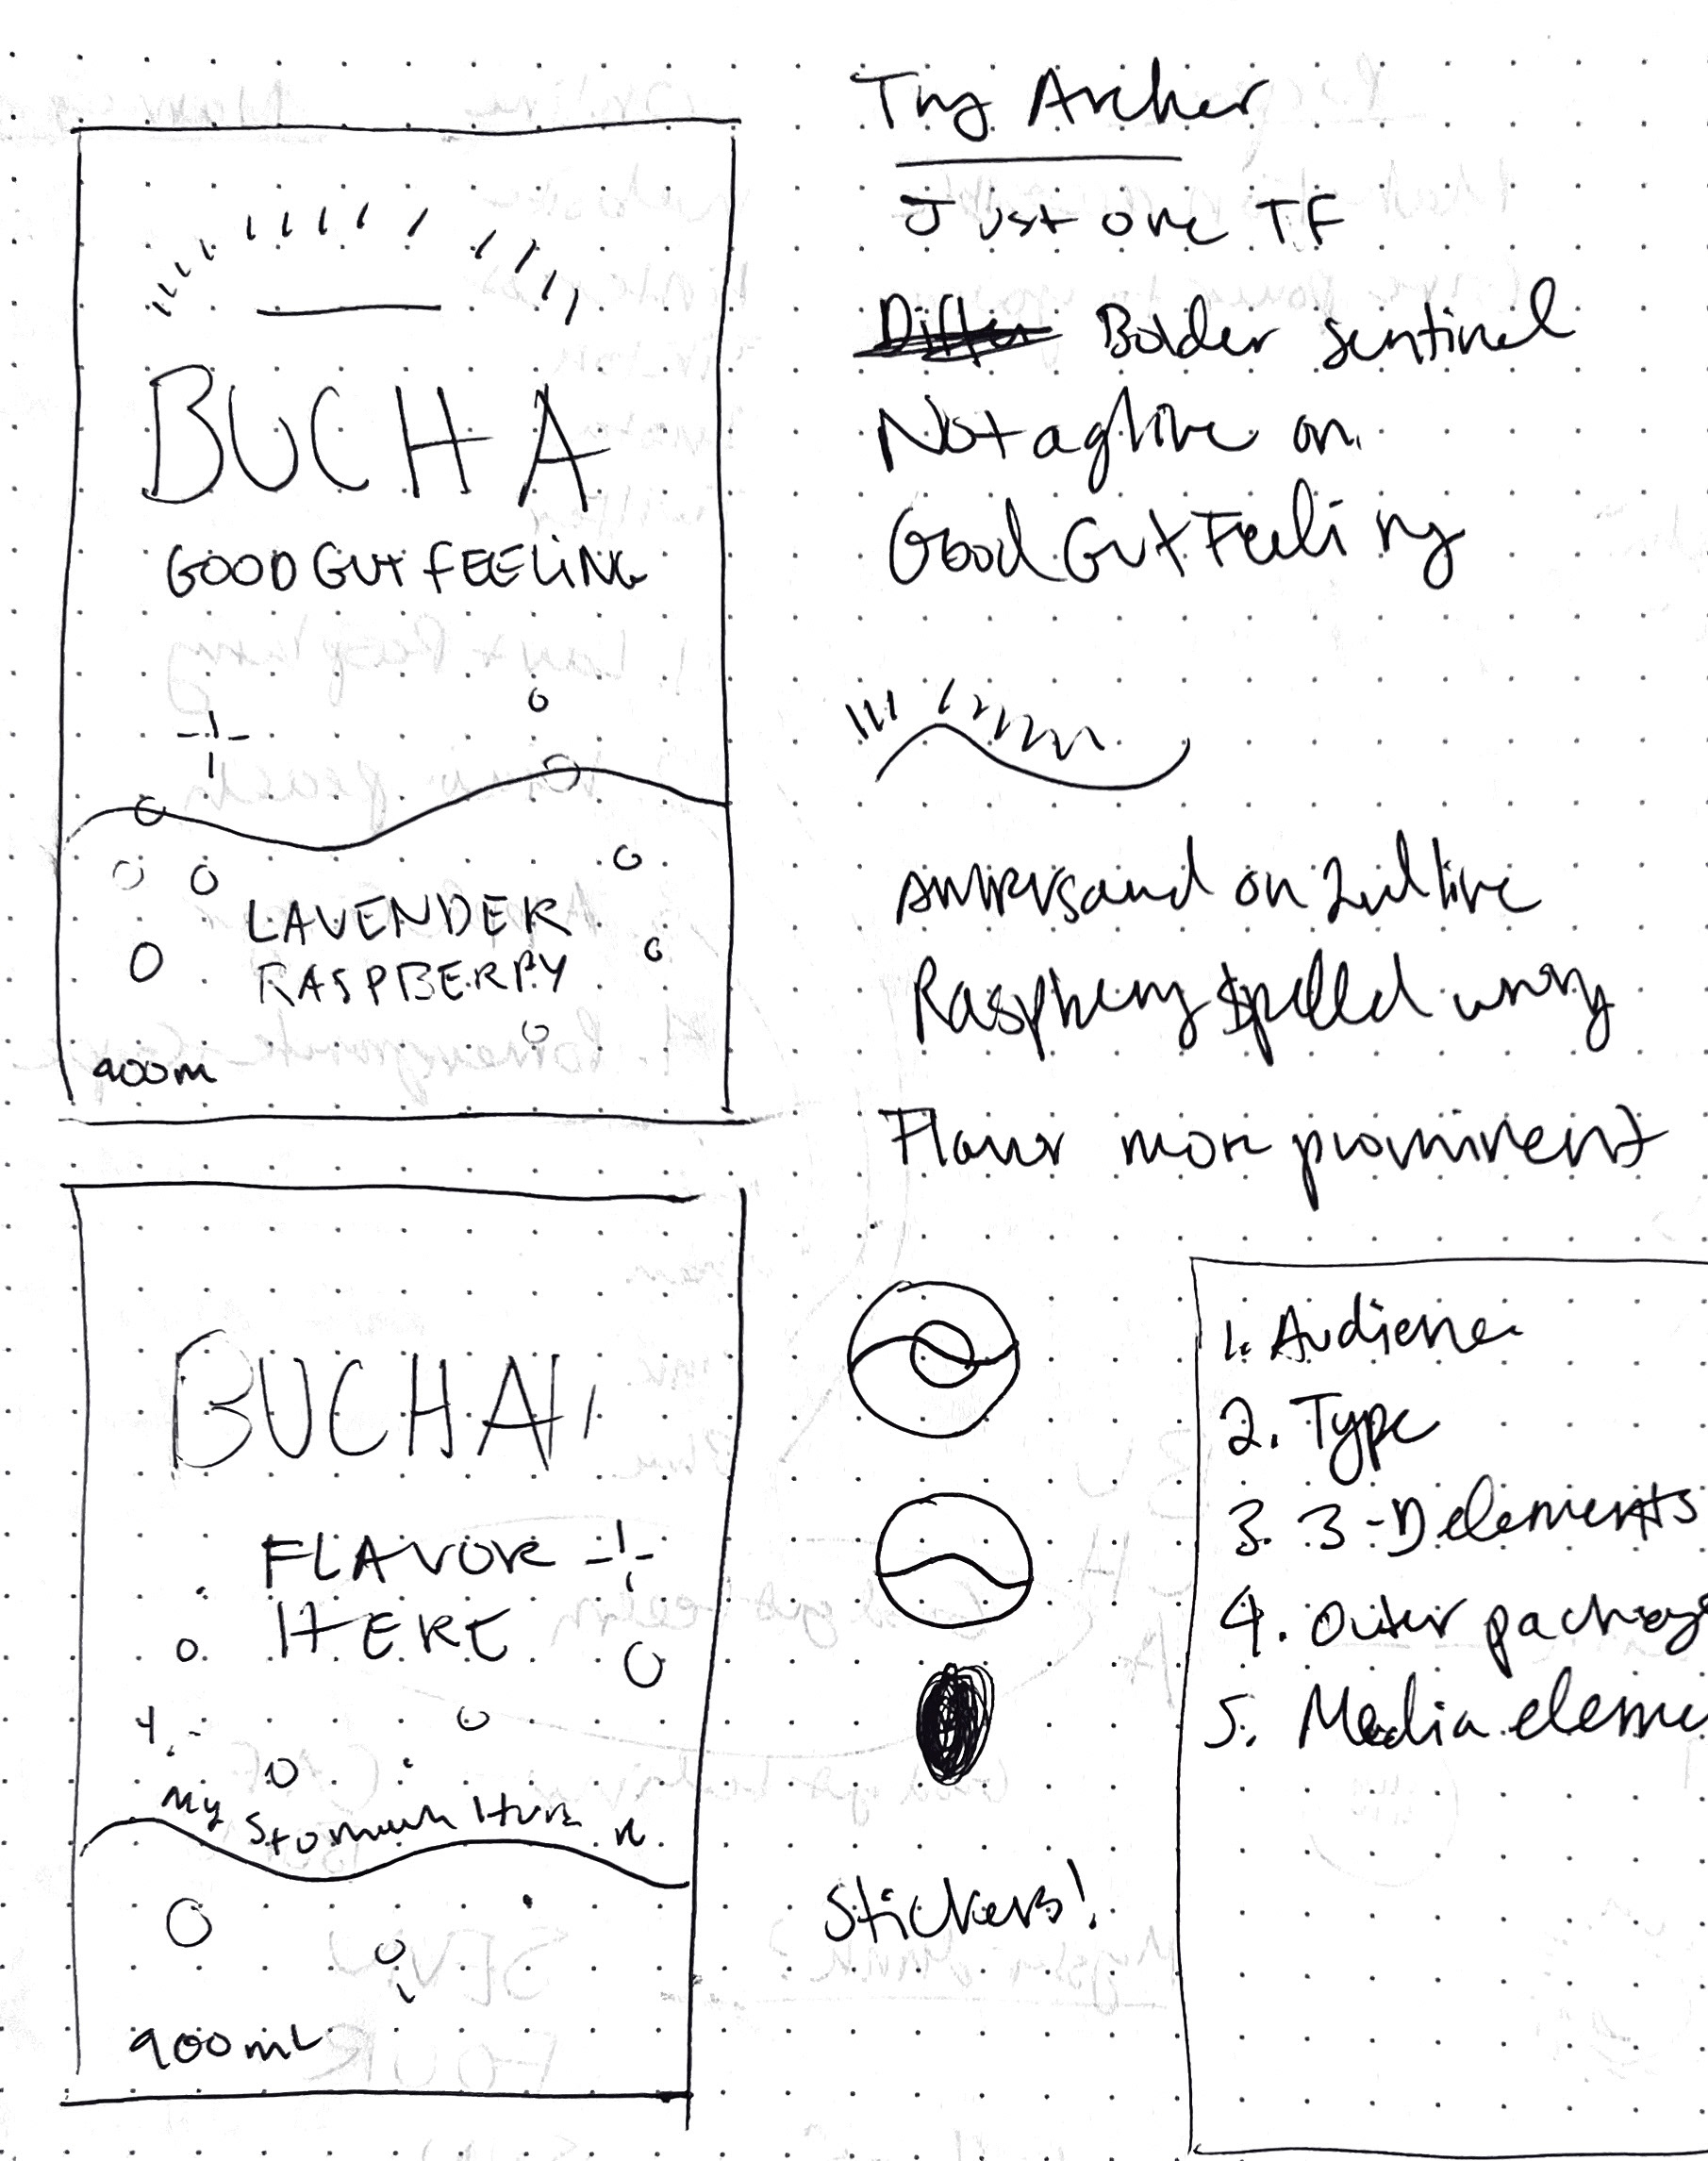 BUCHA
GOOD GUT FEELING
LAVENDER
RASPBERRY
900m
BUCHA
FLAVOR
HERE
My Stomach Hurts
900mL
Try Archer
Just one TF
Bolder sentinel
Not a glove on
Good Gut Feeling
ampersand on 2nd line
Raspberry spelled wrong
Flavor more prominent
Stickers!
1. Audience
2. Type
3. 3-D elements
4. Outer packag
5. Media eleme